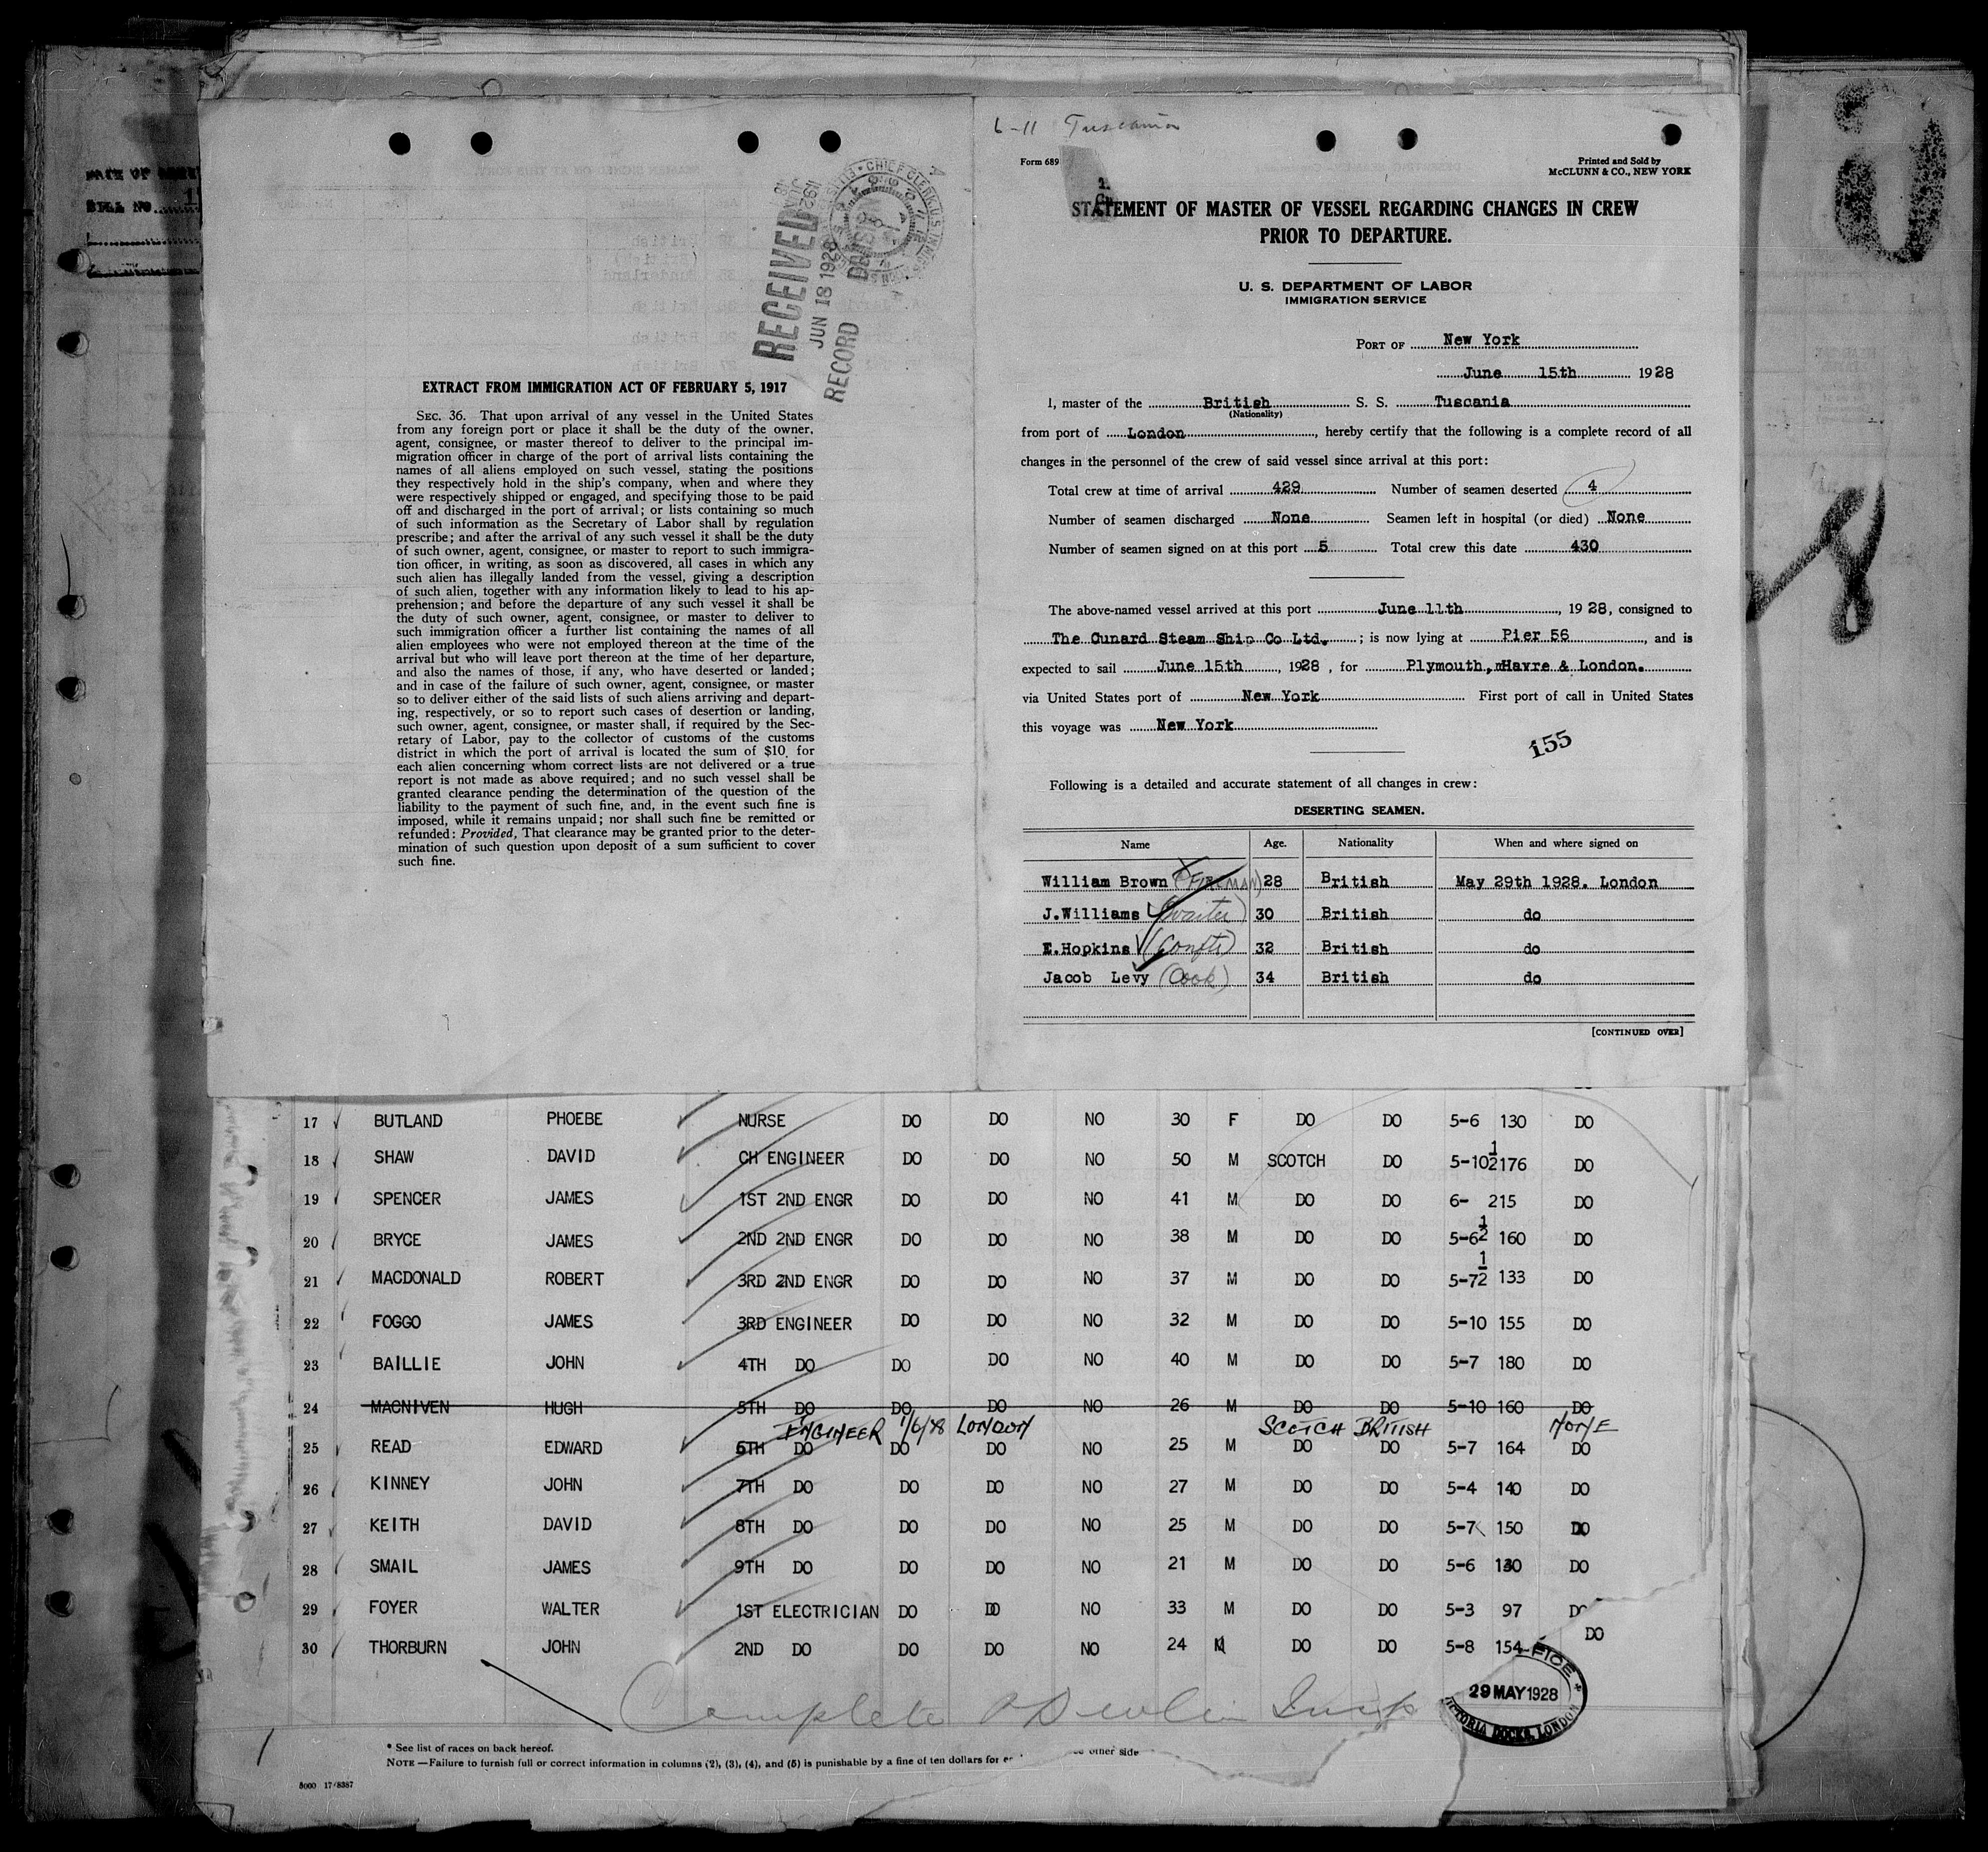 BILL NO.
RECEIVED
JUN 18 1928
RECORD
DIVISION
CHIEF CLERK
EXTRACT FROM IMMIGRATION ACT OF FEBRUARY 5, 1917
SEC. 36. That upon arrival of any vessel in the United States
from any foreign port or place it shall be the duty of the owner,
agent, consignee, or master thereof to deliver to the principal im-
migration officer in charge of the port of arrival lists containing the
names of all aliens employed on such vessel, stating the positions
they respectively hold in the ship's company, when and where they
were respectively shipped or engaged, and specifying those to be paid
off and discharged in the port of arrival; or lists containing so much
of such information as the Secretary of Labor shall by regulation
prescribe; and after the arrival of any such vessel it shall be the duty
of such owner, agent, consignee, or master to report to such immigra-
tion officer, in writing, as soon as discovered, all cases in which any
such alien has illegally landed from the vessel, giving a description
of such alien, together with any information likely to lead to his ap-
prehension; and before the departure of any such vessel it shall be
the duty of such owner, agent, consignee, or master to deliver to
such immigration officer a further list containing the names of all
alien employees who were not employed thereon at the time of the
arrival but who will leave port thereon at the time of her departure,
and also the names of those, if any, who have deserted or landed;
and in case of the failure of such owner, agent, consignee, or master
so to deliver either of the said lists of such aliens arriving and depart-
ing, respectively, or so to report such cases of desertion or landing,
such owner, agent, consignee, or master shall, if required by the Sec-
retary of Labor, pay to the collector of customs of the customs
district in which the port of arrival is located the sum of $10 for
each alien concerning whom correct lists are not delivered or a true
report is not made as above required; and no such vessel shall be
granted clearance pending the determination of the question of the
liability to the payment of such fine, and, in the event such fine is
imposed, while it remains unpaid; nor shall such fine be remitted or
refunded: Provided, That clearance may be granted prior to the deter-
mination of such question upon deposit of a sum sufficient to cover
such fine.
6-11 Tuscania
Form 689
Printed and Sold by
McCLUNN & CO., NEW YORK
STATEMENT OF MASTER OF VESSEL REGARDING CHANGES IN CREW
PRIOR TO DEPARTURE.
U. S. DEPARTMENT OF LABOR
IMMIGRATION SERVICE
PORT OF New York
June 15th 1928
I, master of the British S. S. Tuscania
(Nationality)
from port of London, hereby certify that the following is a complete record of all
changes in the personnel of the crew of said vessel since arrival at this port:
Total crew at time of arrival 429 Number of seamen deserted 4
Number of seamen discharged None Seamen left in hospital (or died) None
Number of seamen signed on at this port 5 Total crew this date 430
The above-named vessel arrived at this port June 11th, 1928, consigned to
The Cunard Steam Ship Co Ltd.; is now lying at Pier 56, and is
expected to sail June 15th, 1928, for Plymouth, Havre & London.
via United States port of New York First port of call in United States
this voyage was New York
155
Following is a detailed and accurate statement of all changes in crew:
DESERTING SEAMEN.
Name Age. Nationality When and where signed on
William Brown (FIREMAN) 28 British May 29th 1928. London
J.Williams (waiter) 30 British do
E.Hopkins 32 British do
Jacob Levy (Cook) 34 British do
[CONTINUED OVER]
17 BUTLAND PHOEBE NURSE DO DO NO 30 F DO DO 5-6 130 DO
18 SHAW DAVID CH ENGINEER DO DO NO 50 M SCOTCH DO 5-10½ 176 DO
19 SPENCER JAMES 1ST 2ND ENGR DO DO NO 41 M DO DO 6- 215 DO
20 BRYCE JAMES 2ND 2ND ENGR DO DO NO 38 M DO DO 5-6½ 160 DO
21 MACDONALD ROBERT 3RD 2ND ENGR DO DO NO 37 M DO DO 5-7½ 133 DO
22 FOGGO JAMES 3RD ENGINEER DO DO NO 32 M DO DO 5-10 155 DO
23 BAILLIE JOHN 4TH DO DO DO NO 40 M DO DO 5-7 180 DO
24 MACNIVEN HUGH 5TH DO DO DO NO 26 M DO DO 5-10 160 DO
ENGINEER 1/6/28 LONDON SCOTCH BRITISH NONE
25 READ EDWARD 6TH DO DO DO NO 25 M DO DO 5-7 164 DO
26 KINNEY JOHN 7TH DO DO DO NO 27 M DO DO 5-4 140 DO
27 KEITH DAVID 8TH DO DO DO NO 25 M DO DO 5-7 150 DO
28 SMAIL JAMES 9TH DO DO DO NO 21 M DO DO 5-6 130 DO
29 FOYER WALTER 1ST ELECTRICIAN DO DO NO 33 M DO DO 5-3 97 DO
30 THORBURN JOHN 2ND DO DO DO NO 24 M DO DO 5-8 154 DO
Complete
29 MAY 1928
VICTORIA DOCKS, LONDON
* See list of races on back hereof.
NOTE—Failure to furnish full or correct information in columns (2), (3), (4), and (5) is punishable by a fine of ten dollars for other side
5000 17/8387